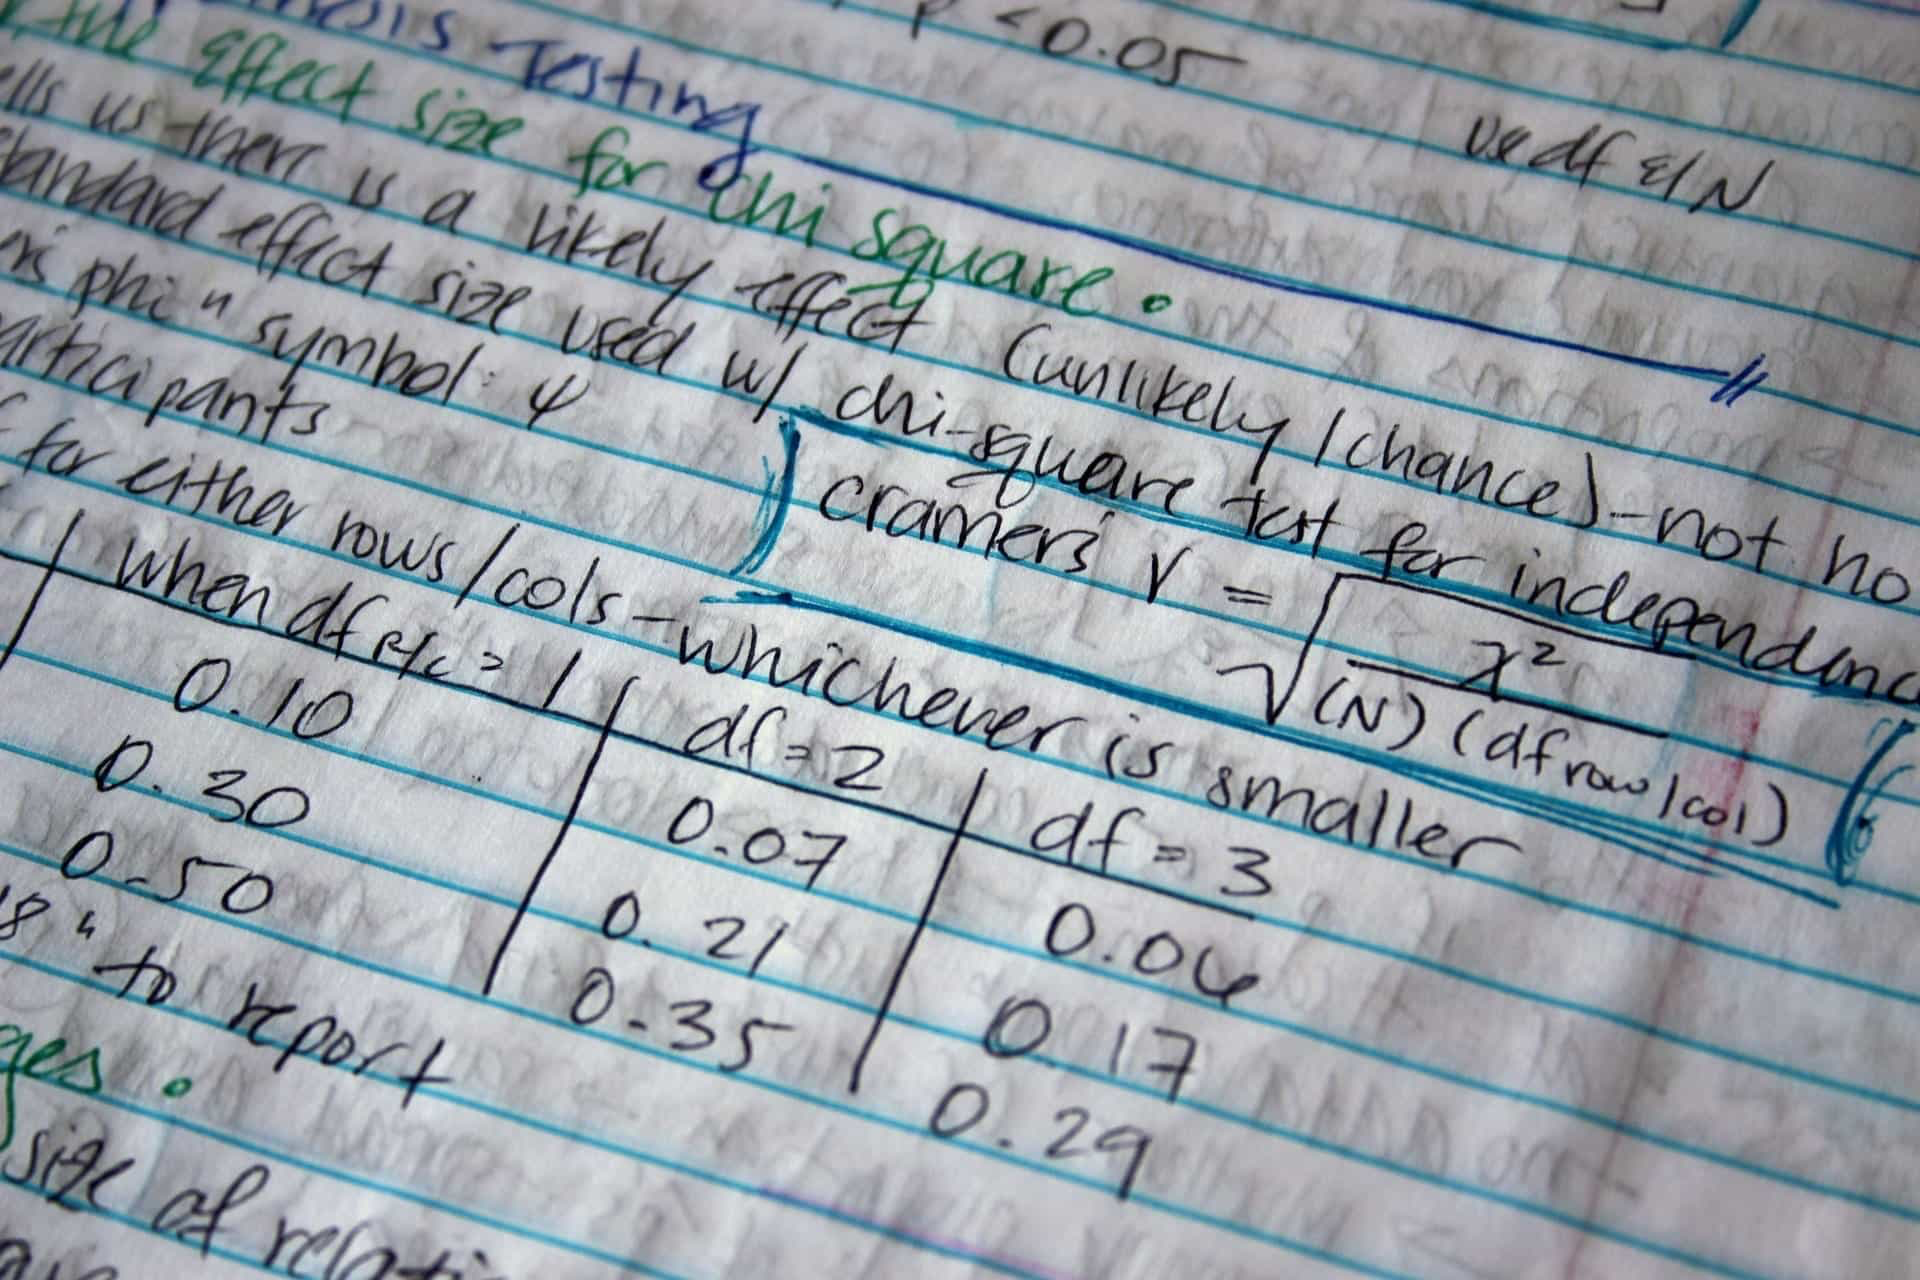 P < 0.05
use df & N
Testing
the effect size for chi square.
us there is a likely effect (unlikely/chance) - not no
standard effect size used w/ chi-square test for independence
phi" symbol: φ
cramer's V = √ χ² / (N) (df row/col)
participants
for either rows/cols - whichever is smaller
when df R/C = 1 | df = 2 | df = 3
0.10 | 0.07 | 0.06
0.30 | 0.21 | 0.17
0.50 | 0.35 | 0.29
" to report
size of